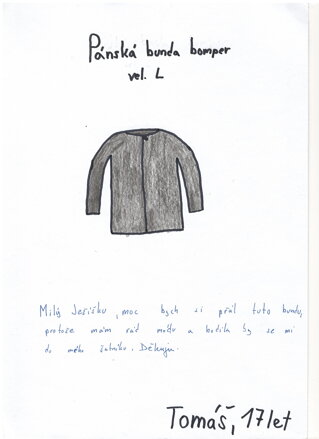 Pánská bunda bomper
vel. L
Milý Ježíšku, moc bych si přál tuto bundu,
protože mám rád módu a hodila by se mi
do mého šatníku. Děkuju.
Tomáš, 17 let